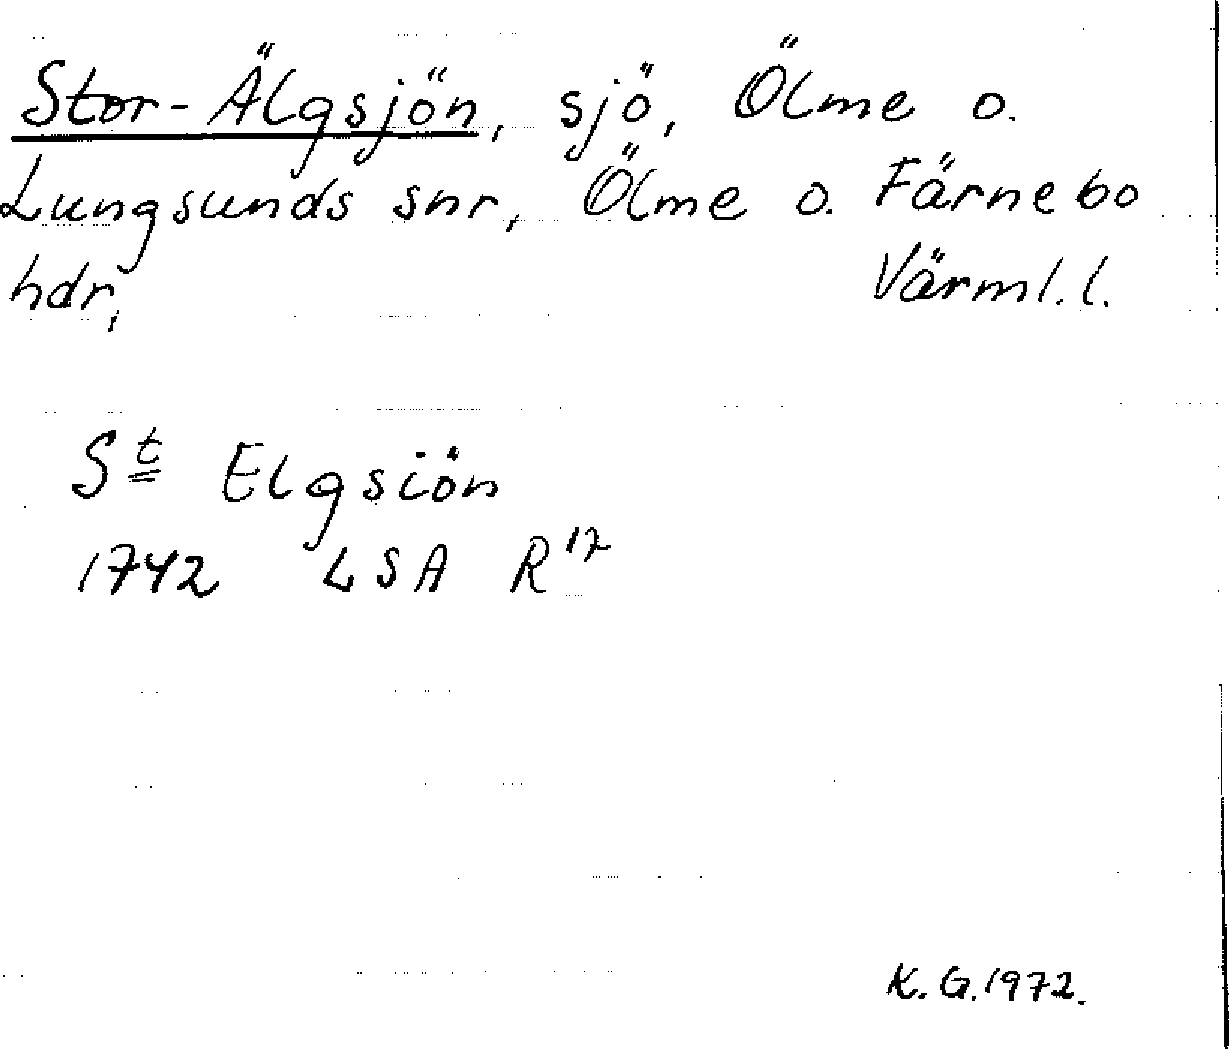 Stor-Älgsjön, sjö, Ölme o.
Lungsunds snr, Ölme o. Färnebo
hdr, Värml. l.
St Elgsiön
1742 LSA R17
K. G. 1972.